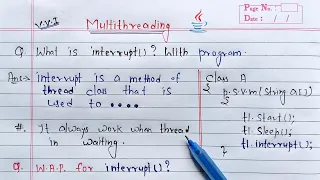 V.V.I
Multithreading
Page No.:
Date: / /
Q. What is interrupt()? With program.
Ans→ interrupt is a method of
thread class that is
used to ••••
#. It always work when thread
in waiting.
Q. W.A.P. for interrupt()?
class A
{
p.s.v.m(String a[])
{
t1.start();
t1.sleep();
t1.interrupt();
}